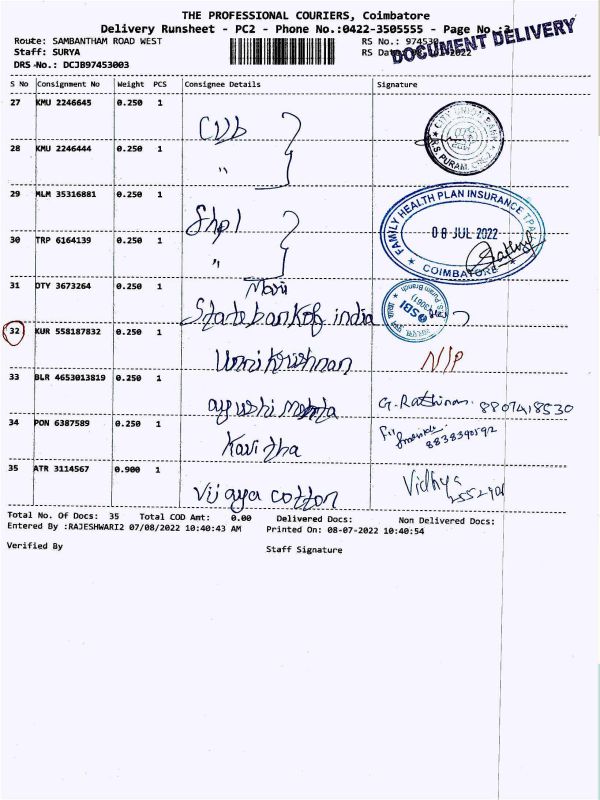 THE PROFESSIONAL COURIERS, Coimbatore
Delivery Runsheet - PC2 - Phone No.:0422-3505555 - Page No.:
DOCUMENT DELIVERY
Route: SAMBANTHAM ROAD WEST RS No.: 974530
Staff: SURYA RS Dat 2022
DRS No.: DCJB97453003
S No Consignment No Weight PCS Consignee Details Signature
27 KMU 2246645 0.250 1 CUB
CITY UNION BANK
R.S. PURAM, CBE-2
28 KMU 2246444 0.250 1 "
29 MLM 35316881 0.250 1 Shpl
FAMILY HEALTH PLAN INSURANCE TPA
08 JUL 2022
COIMBATORE
30 TRP 6164139 0.250 1 "
31 DTY 3673264 0.250 1 Main
State bank of india
SBI
32 KUR 558187832 0.250 1 Unnikrishnan N/P
33 BLR 4653013819 0.250 1 ayushi mehta G. Rathinam. 8807418530
34 PON 6387589 0.250 1 Kavitha 8838390592
35 ATR 3114567 0.900 1 Vijaya cotton Vidhya
Total No. Of Docs: 35 Total COD Amt: 0.00 Delivered Docs: Non Delivered Docs:
Entered By :RAJESHWARI2 07/08/2022 10:40:43 AM Printed On: 08-07-2022 10:40:54
Verified By Staff Signature